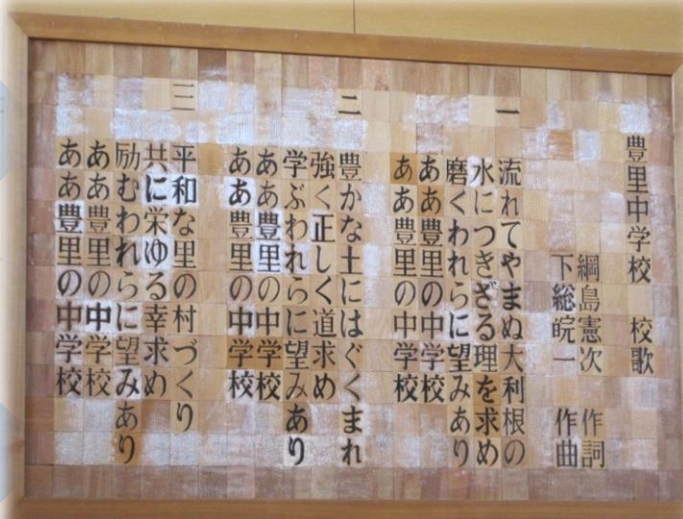 豊里中学校 校歌
綱島憲次 作詞
下総皖一 作曲
一
流れてやまぬ大利根の
水につきざる理を求め
磨くわれらに望みあり
ああ豊里の中学校
ああ豊里の中学校
二
豊かな土にはぐくまれ
強く正しく道求め
学ぶわれらに望みあり
ああ豊里の中学校
ああ豊里の中学校
三
平和な里の村づくり
共に栄ゆる幸求め
励むわれらに望みあり
ああ豊里の中学校
ああ豊里の中学校